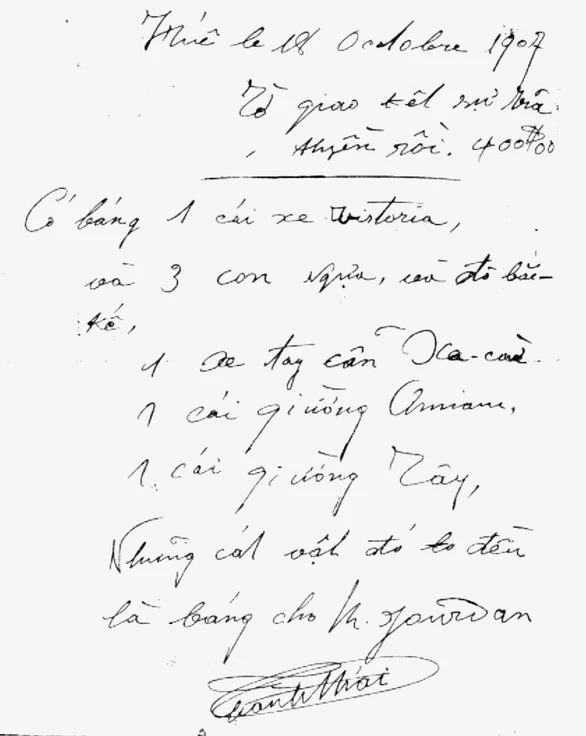 Huế le 18 Octobre 1907
Tờ giao kết sự trã
thyền rồi. 400$00
Có báng 1 cái xe Vistoria,
và 3 con ngựa, và đồ bắc-
kế,
1 xe tay cẩn Xa-cừ.
1 cái giường Annam,
1 cái giường Tây,
Những cát vật đó to đều
là báng cho M. Jourdan
Thành Thái